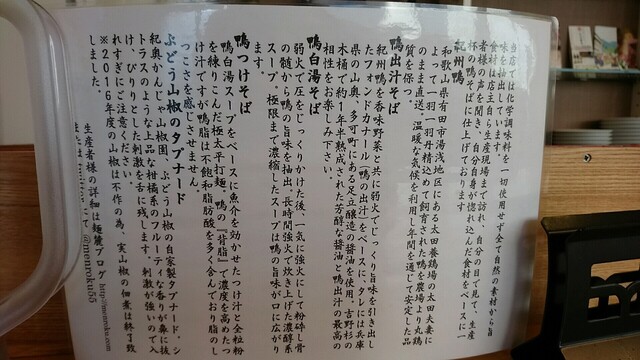 当店では化学調味料を一切使用せず全て自然の素材から旨
味を抽出しています。
食材は店主自ら生産現場まで訪れ、自分の目で見て、生産
者様の声を聞き、自分自身が惚れ込んだ食材をベースに一
杯の鴨そばに仕上げております
紀州鴨
和歌山県有田市湯浅地区にある太田養鶏場の太田夫妻に
よって一羽一羽丹精込めて飼育された鴨を農場より丸鴨
のまま直送。温暖な気候を利用し年間を通じて安定した品
質を保
鴨出汁そば
紀州鴨を香味野菜と共に弱火でじっくり旨味を引き出し
たフォンドカナール(鴨の出汁)をベースに、タレには兵庫
県の山奥、多可町にある足立醸造の醤油を使用。吉野杉の
木桶で約1年半熟成された芳醇な醤油と鴨出汁の最高の
相性をお楽しみ下さい。
鴨白湯そば
弱火で圧をじっくりかけた後、一気に強火にして粉砕し骨
の髄から鴨の旨味を抽出。長時間強火で炊き上げた濃醇系
スープ。極限まで濃縮したスープは鴨の旨味が口に広がり
ます。
鴨つけそば
鴨白湯スープをベースに魚介を効かせたつけ汁と全粒粉
を練りこんだ極太平打麺。鴨の『背脂』で濃度を高めたつ
け汁ですが鴨脂は不飽和脂肪酸を多く含んでおり脂のし
つこさを感じさせません。
ぶどう山椒のタプナード
紀奥かんじゃ山椒園、ぶどう山椒の自家製タプナード。シ
トラスのような上品な柑橘系のフルーティな香りが鼻に抜
け、ぴりりとした刺激を舌に残します。刺激が強いので入
れすぎにご注意ください。
※2016年度の山椒は不作の為、実山椒の佃煮は終了致
しました。
生産者様の詳細は麺麓ブログ http://menroku.com
または twitter にて @menroku55